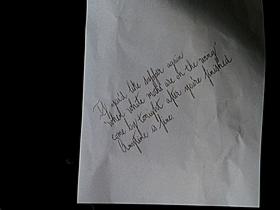 If you'd like supper again
"when white moths are on the wing"
come by tonight after you're finished
Anytime is fine.